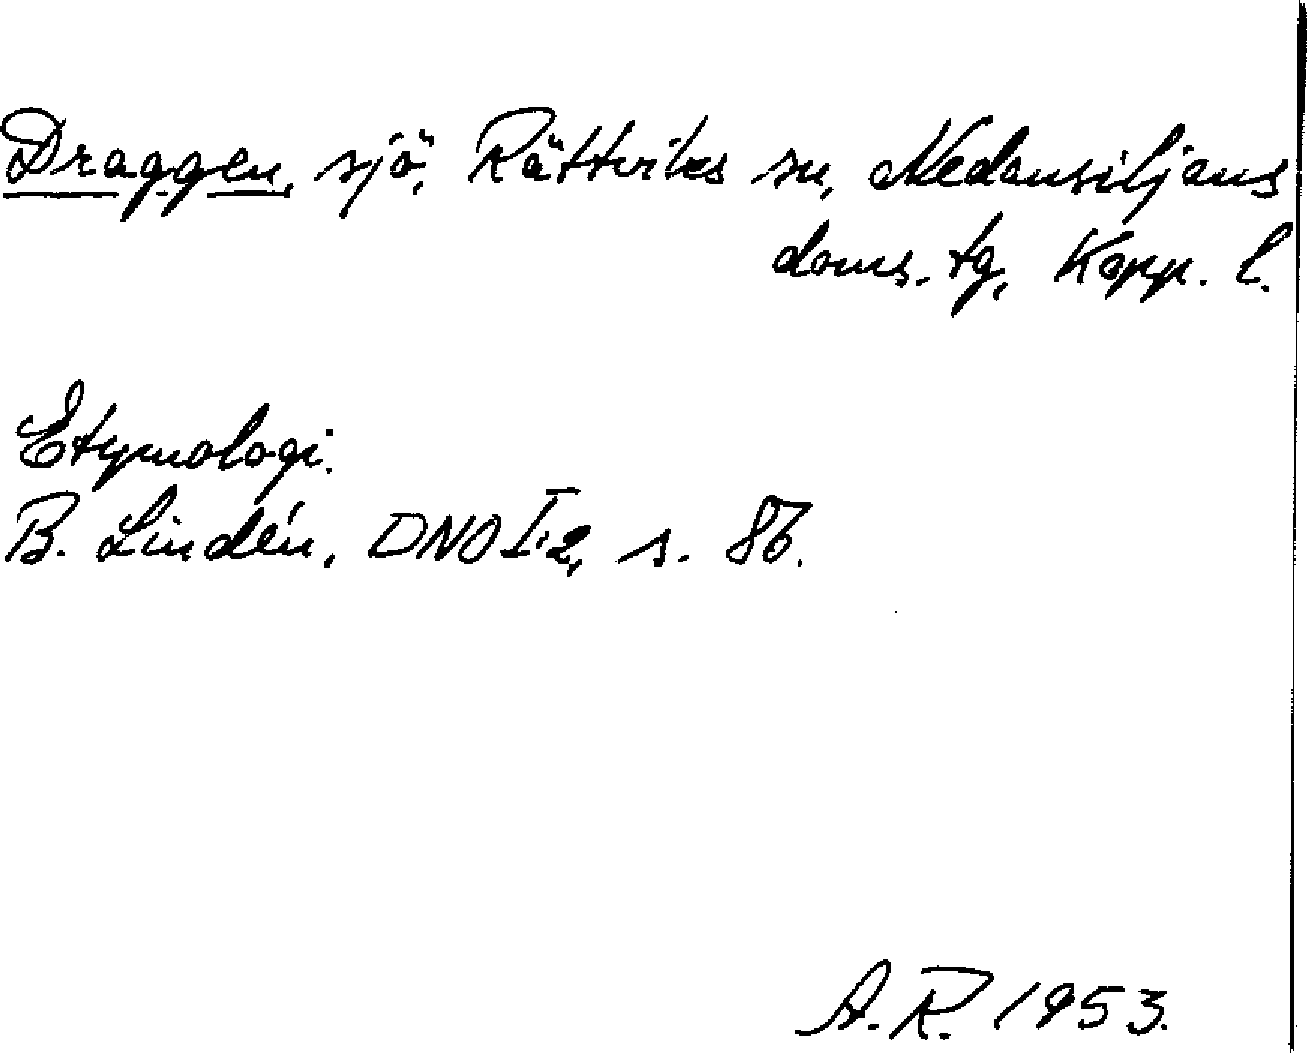 Draggen, sjö, Rättviks sn, Nedansiljans
doms. tg, Kopp. l.
Etymologi.
B. Lindén, DNO I:2, s. 86.
A. R. 1953.